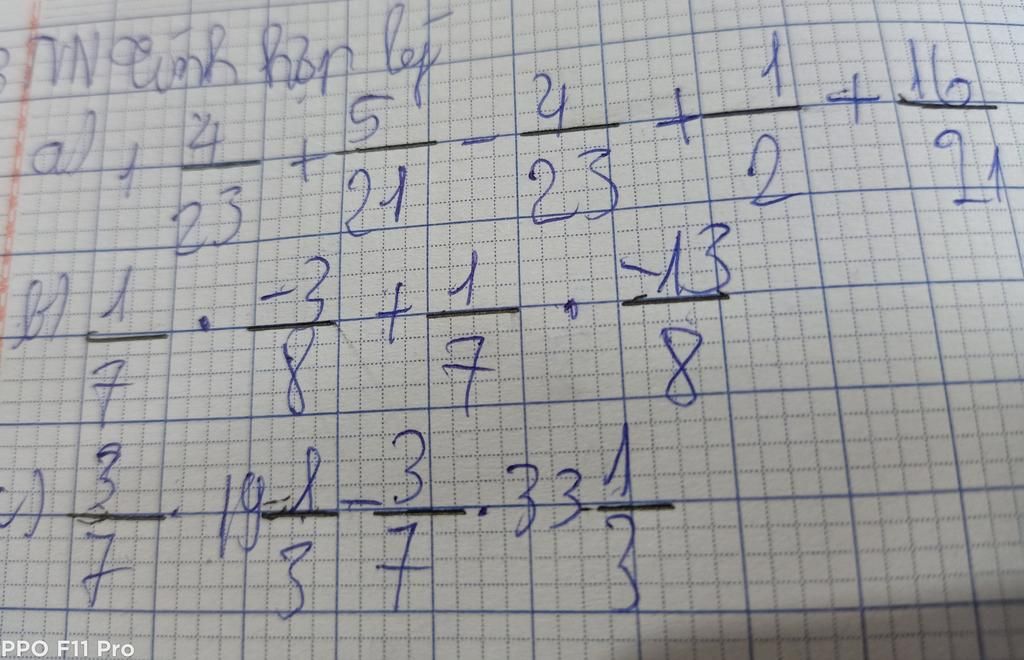 VN Tính hợp lý
a) + 4/23 + 5/21 - 4/23 + 1/2 + 16/21
b) 1/7 . -3/8 + 1/7 . -13/8
c) 3/7 . 19 1/3 - 3/7 . 33 1/3
PPO F11 Pro